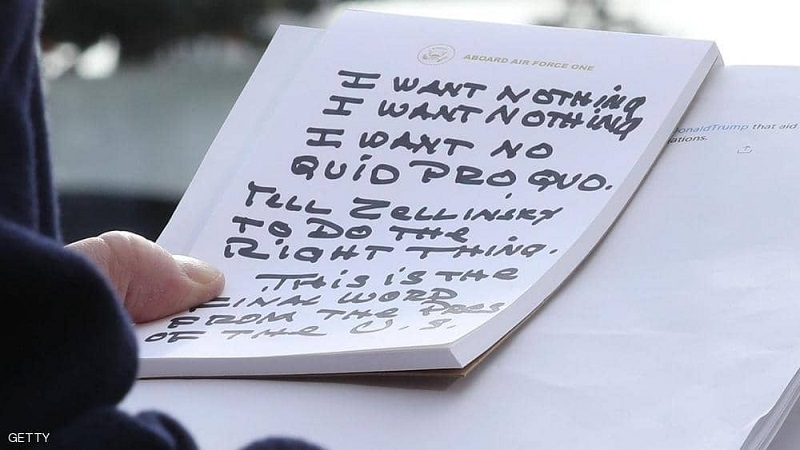 ABOARD AIR FORCE ONE
I WANT NOTHING
I WANT NOTHING
I WANT NO
QUID PRO QUO.
TELL ZELLINSKY
TO DO THE
RIGHT THING.
THIS IS THE
FINAL WORD
FROM THE PRES
OF THE U.S.
onaldTrump that aid
ations.
GETTY